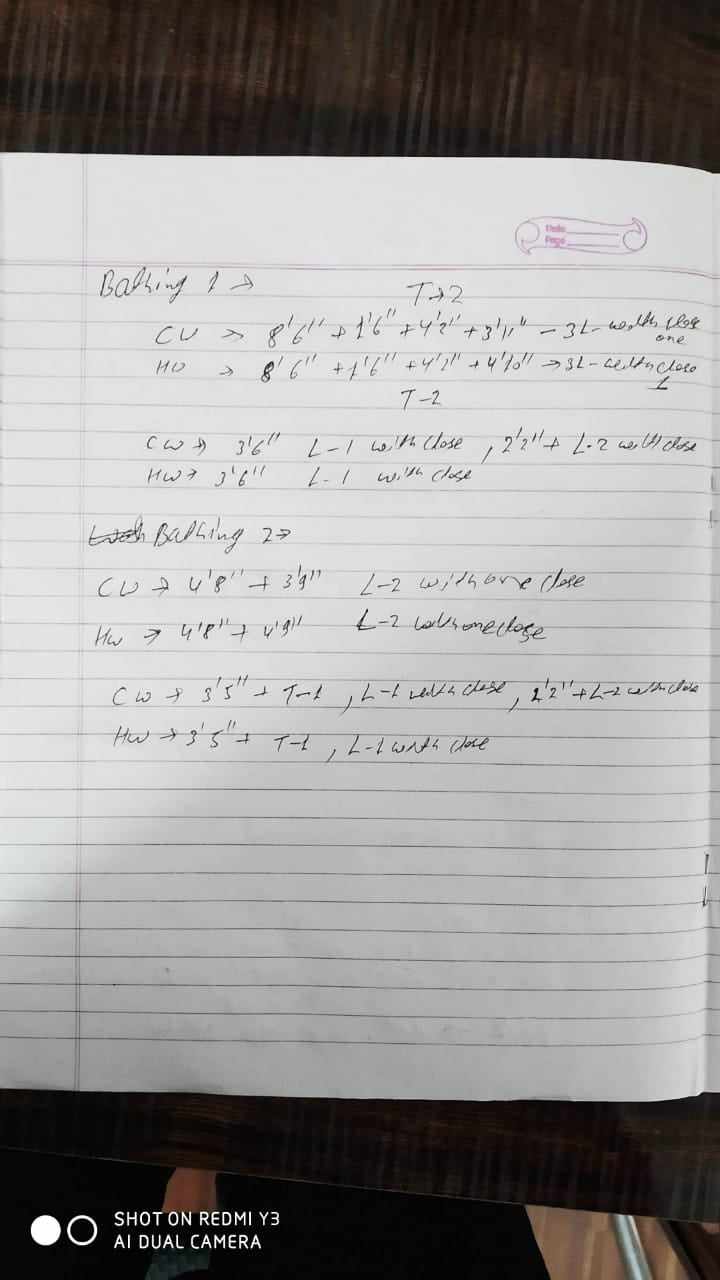 Date
Page
Bathing 1 →
T→2
CW → 8'6" + 1'6" + 4'2" + 3'11" - 3L - with close one
HW → 8'6" + 1'6" + 4'2" + 4'10" → 3L - with close 1
T-2
CW → 3'6" L-1 with close , 2'2" + L-2 with close
HW → 3'6" L-1 with close
Bathing 2→
CW → 4'8" + 3'9" L-2 with one close
HW → 4'8" + 4'9" L-2 with one close
CW → 3'5" + T-1 , L-1 with close , 2'2" + L-2 with close
HW → 3'5" + T-1 , L-1 with close
SHOT ON REDMI Y3
AI DUAL CAMERA